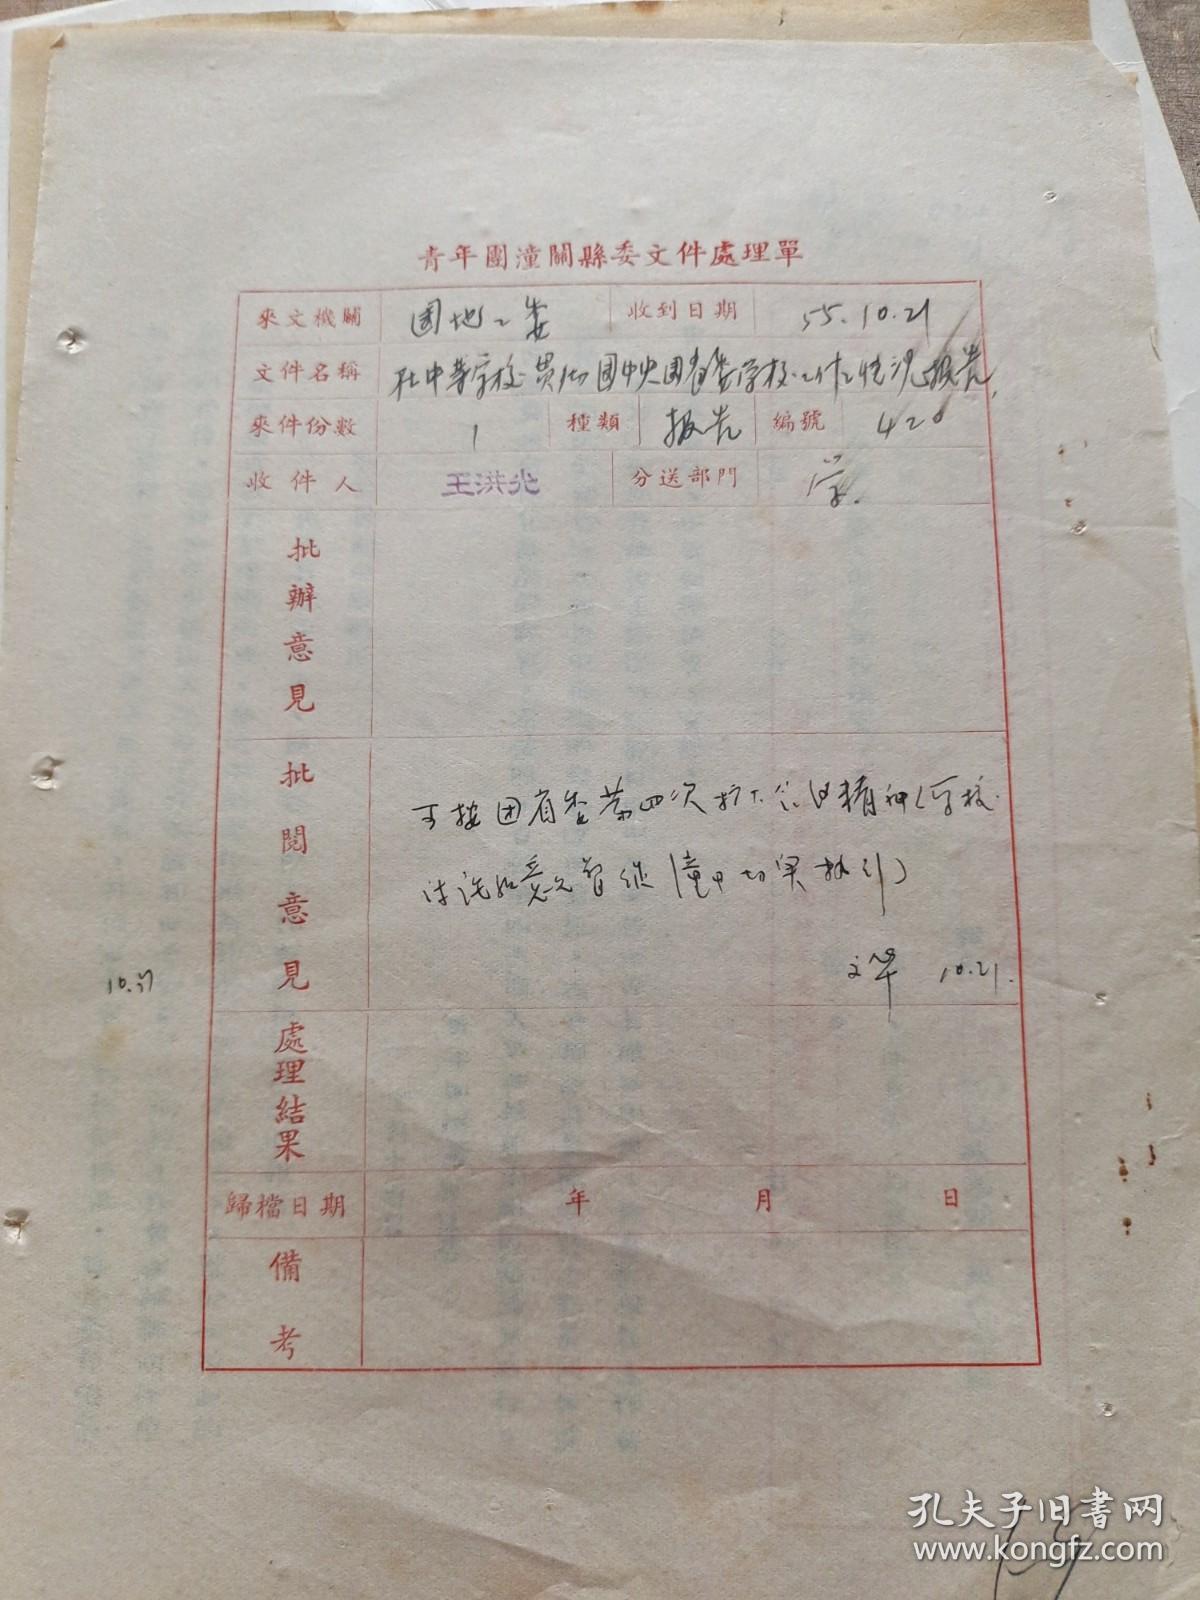 青年團潼關縣委文件處理單
來文機關 團地工委 收到日期 55.10.21
文件名稱 在中等學校貫彻团中央团省委学校工作情况报告
來件份數 1 種類 报告 編號 420
收件人 王洪光 分送部門 学
批辦意見
批閱意見
可按团省委第四次扩大会议精神(学校
切实执行)
文华 10.21.
處理結果
歸檔日期 年 月 日
備考
孔夫子旧书网
www.kongfz.com